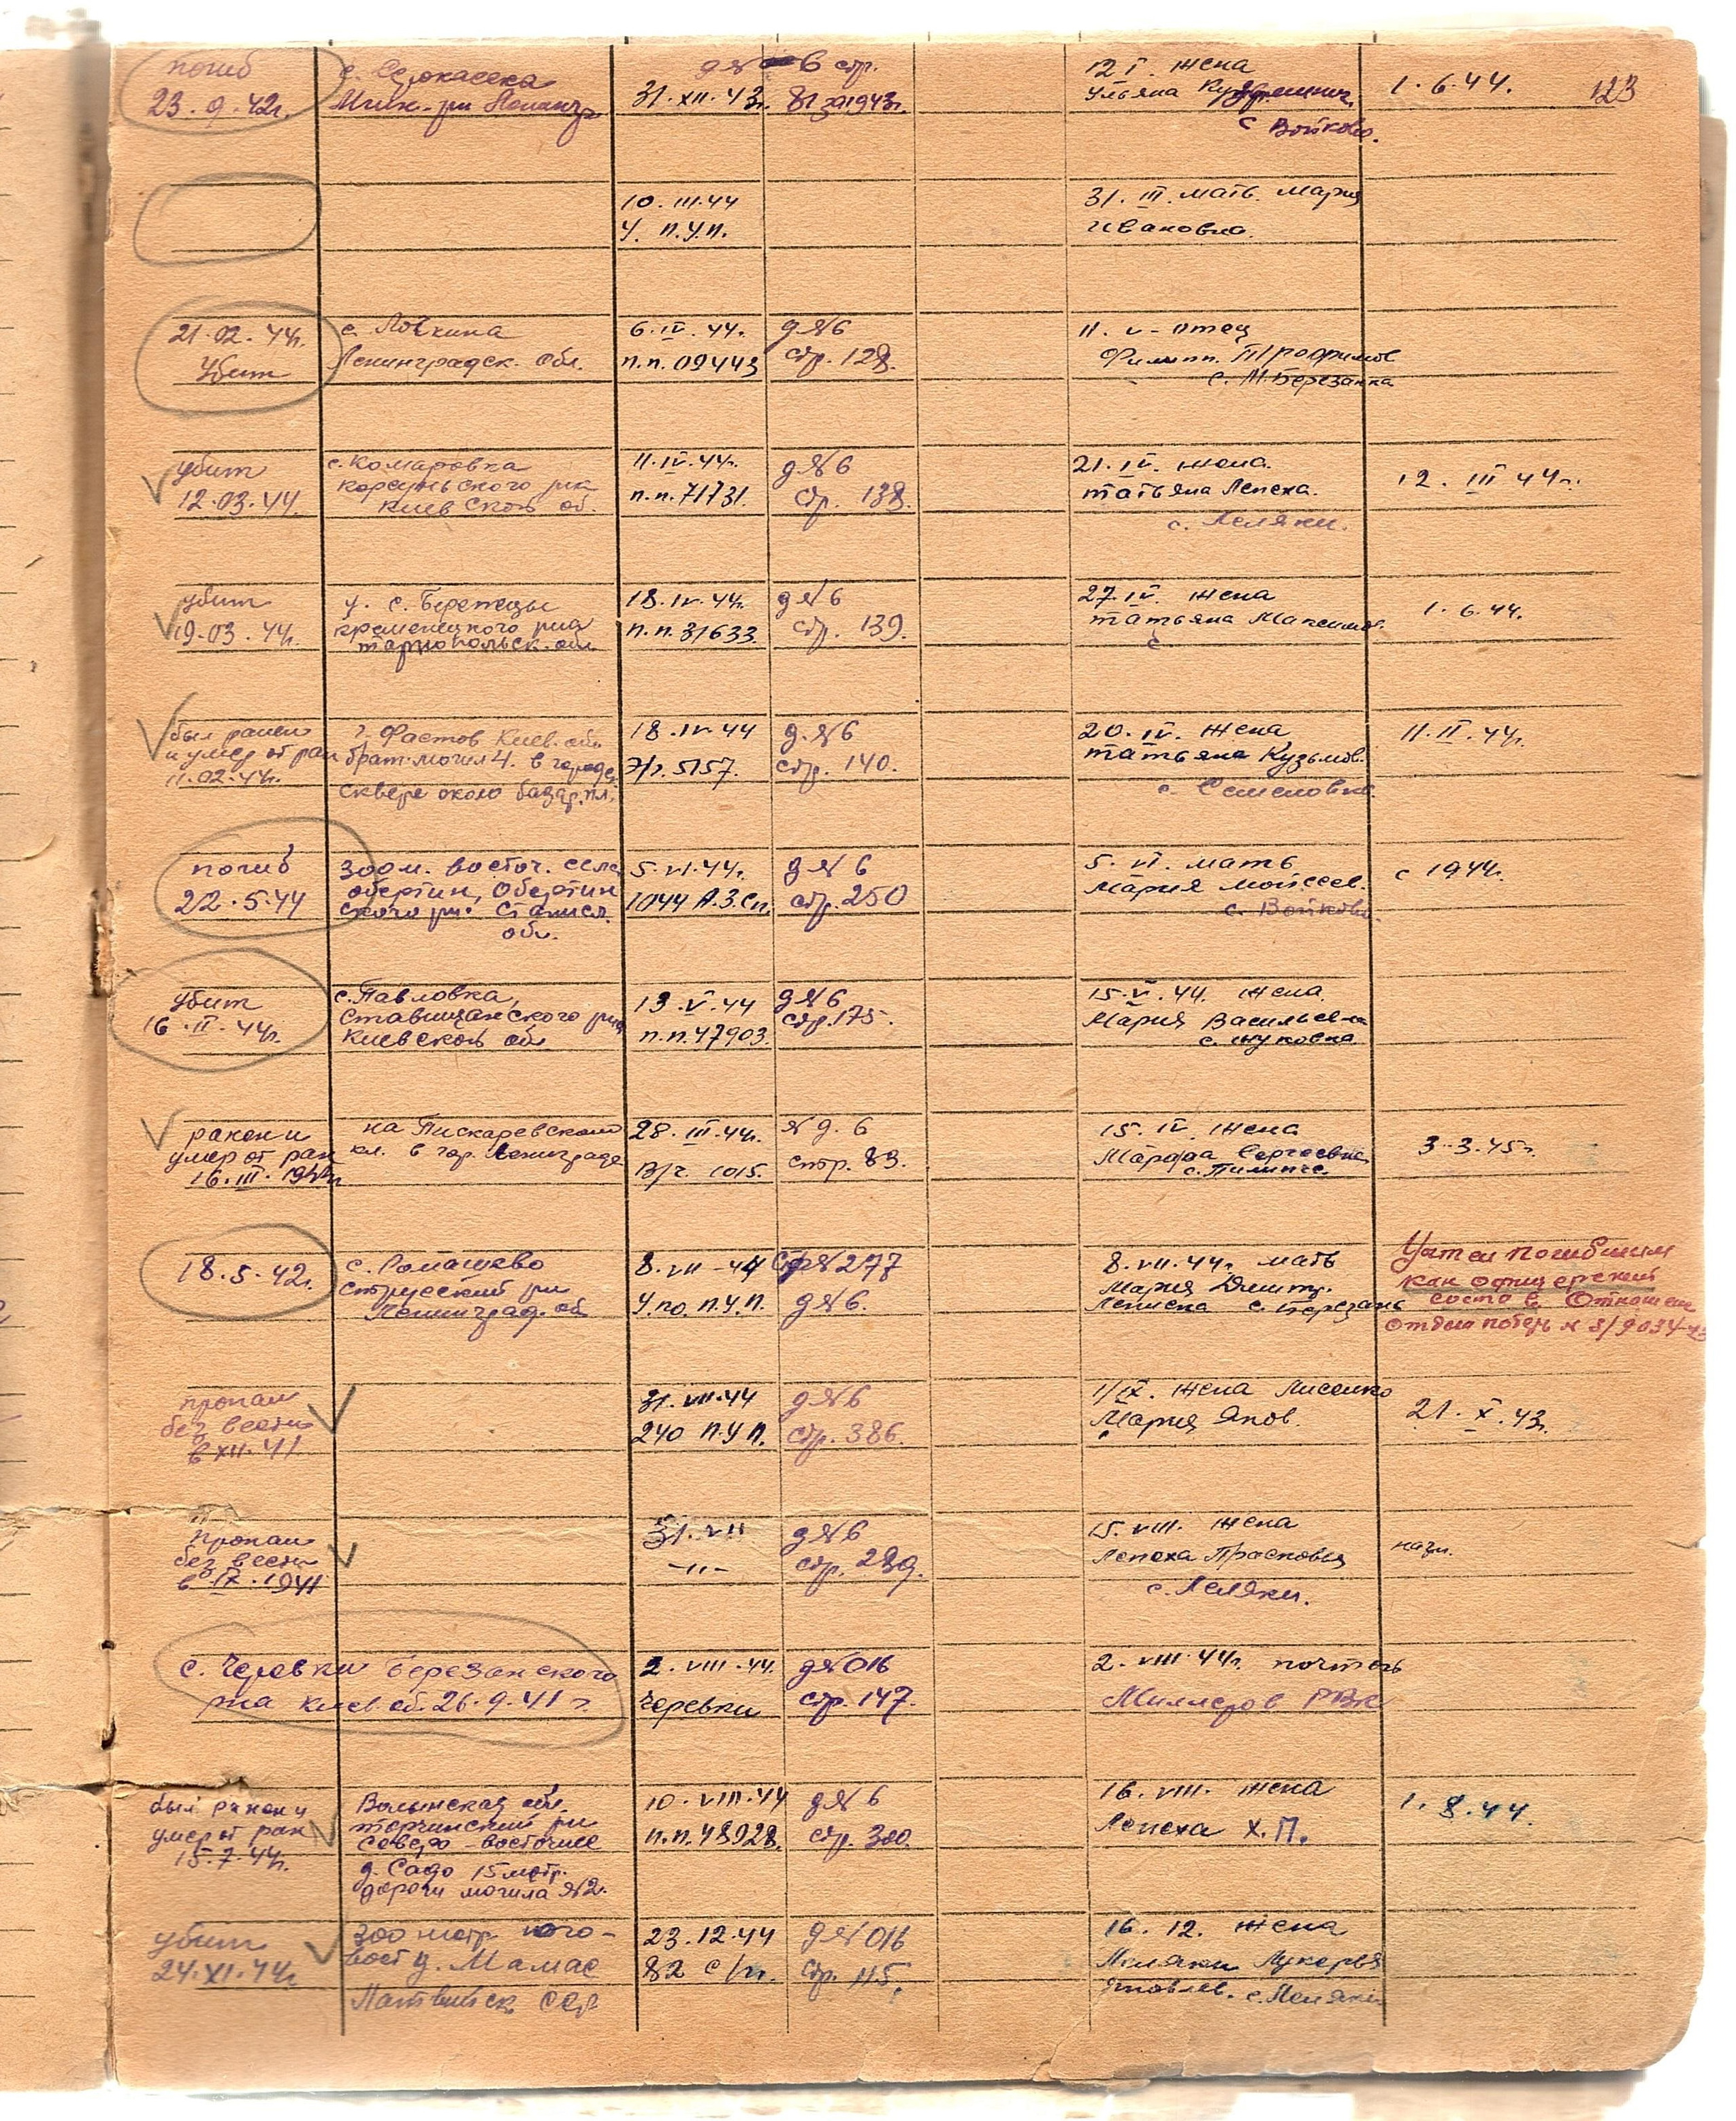 123
погиб
23.9.42г.
с.
31.XII.43г.
д№6 стр.
81 за 1943г.
12 I. жена
Ульяна
с Войково.
1.6.44.
10.III.44
У. п.у.п.
31.III. мать Мария
Ивановна.
21.02.44г.
Убит
с. Ловкина
Ленинградск. обл.
6.IV.44г.
п.п.09443
д№6
стр. 128.
11.V-отец
Филипп. Трофимов
с. М.Березанка
убит
12.03.44.
с.Комаровка
корсуньского р-на
Киевской об.
11.IV.44г.
п.п.71731.
д№6
стр. 138.
21.IV. жена.
Татьяна Лепеха.
с. Леляки.
12. III 44г.
убит
19.03.44г.
у. с. Бережцы
кременецкого р-на
тарнопольск. обл.
18.IV.44г.
п.п.31633.
д№6
стр. 139.
27.IV. жена
татьяна Максимов.
с.
1.6.44.
был ранен
и умер от ран
11.02.44г.
г. Фастов Киев. обл.
брат.могил 4. в город.
сквере около базар.пл.
18.IV.44
Э/г.5157.
д.№6
стр. 140.
20.IV. жена
татьяна Кузьмов.
с. Семеловка.
11.II.44г.
погиб
22.5.44
300м. восточ. села
обертин, Обертин
ского р-н. Станисл.
обл.
5.VI.44г.
1044 А.З.Сп.
д№ 6
стр.250
5.VI. мать
Мария Мойсеев.
с. Войково.
с 1944г.
убит
16.II.44г.
с.Павловка,
Ставищанского р-на
Киевской обл.
13.V.44
п.п.47903.
д№6
стр.175.
15.V.44. жена.
Мария Васильевна
с. Жуковка
ранен и
умер от ран
16.III.1944г.
на Пискаревском
кл. в гор. Ленинграде
28.III.44г.
В/ч. 1015.
№д.6
стр. 83.
15.IV. жена
Марфа Сергеевна
с.Пилипче.
3.3.45г.
18.5.42г.
с. Ромашево
Ленинград. об
8.VII-44
У.по.п.у.п.
стр№277
д№6.
8.VII.44г. мать
Мария Дмитр.
с. Березань
Учтен погибшим
как офицерский
состав. Отношен
отдел потерь
пропал
без вести
в XII.41
31.VII.44
240 п.у п.
д№6
стр. 386.
1/IX. жена Лисенко
Мария Яков.
с
21.X.43г.
пропал
без вести
в IX.1941
31.VII
-"-
д№6
стр. 289.
15.VIII. жена
Лепеха Прасковья
с. Леляки.
с. Черевки березанского
р-на киев.об.26.9.41г.
2.VIII.44.
Черевки
д№016
стр.147.
2.VIII 44г. почтой
Миллеров РВК
был ранен и
умер от ран
15.7.44г.
Волынская обл.
торчинский р-н
северо-восточнее
д. Садо 15 метр.
дороги могила №2.
10.VIII.44
п.п.48928.
д№6
стр. 300.
16.VIII. жена
Лепеха Х.П.
1.8.44.
убит
24.XI.44г.
300 метр юго-
вост д. Мамас
Латвийск ССР
23.12.44
82 с/п.
д№016
стр. 115.
16.12. жена
Леляки Лукерья
Яковлев. с.Леляки